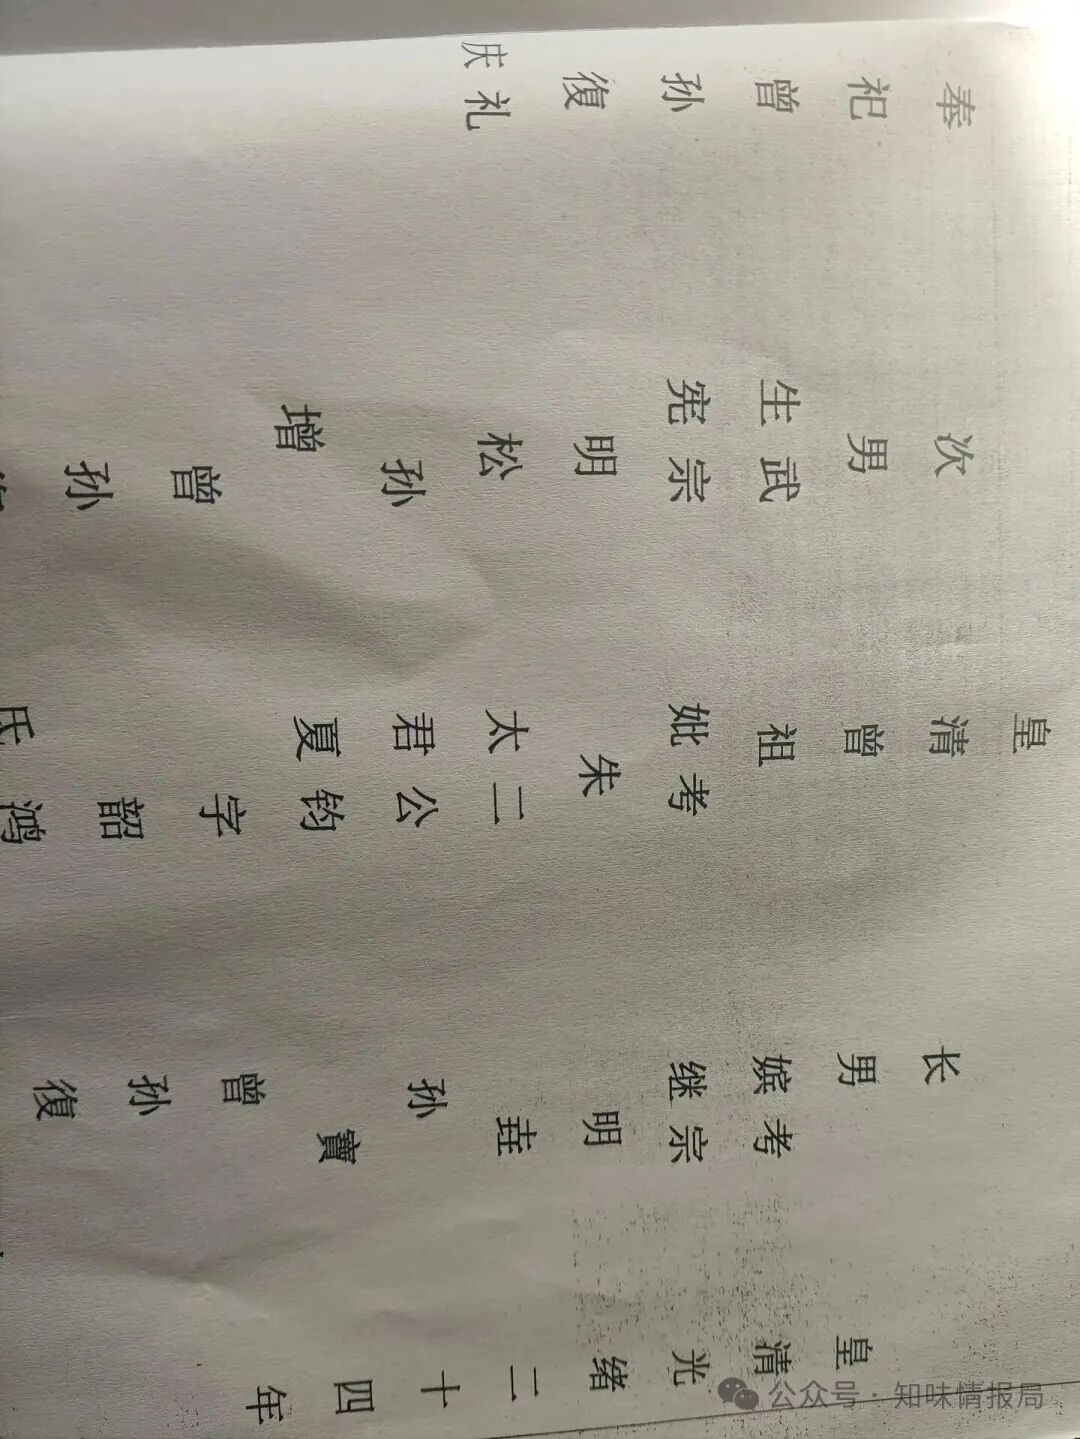 皇清光绪二十四年
长男考嫔宗继明孙寶曾孙復
皇清曾祖考妣朱二太公君钧夏字韶鸿氏
次男武生宗宪明松孙增曾孙
奉祀曾孙復礼庆
公众号·知味情报局